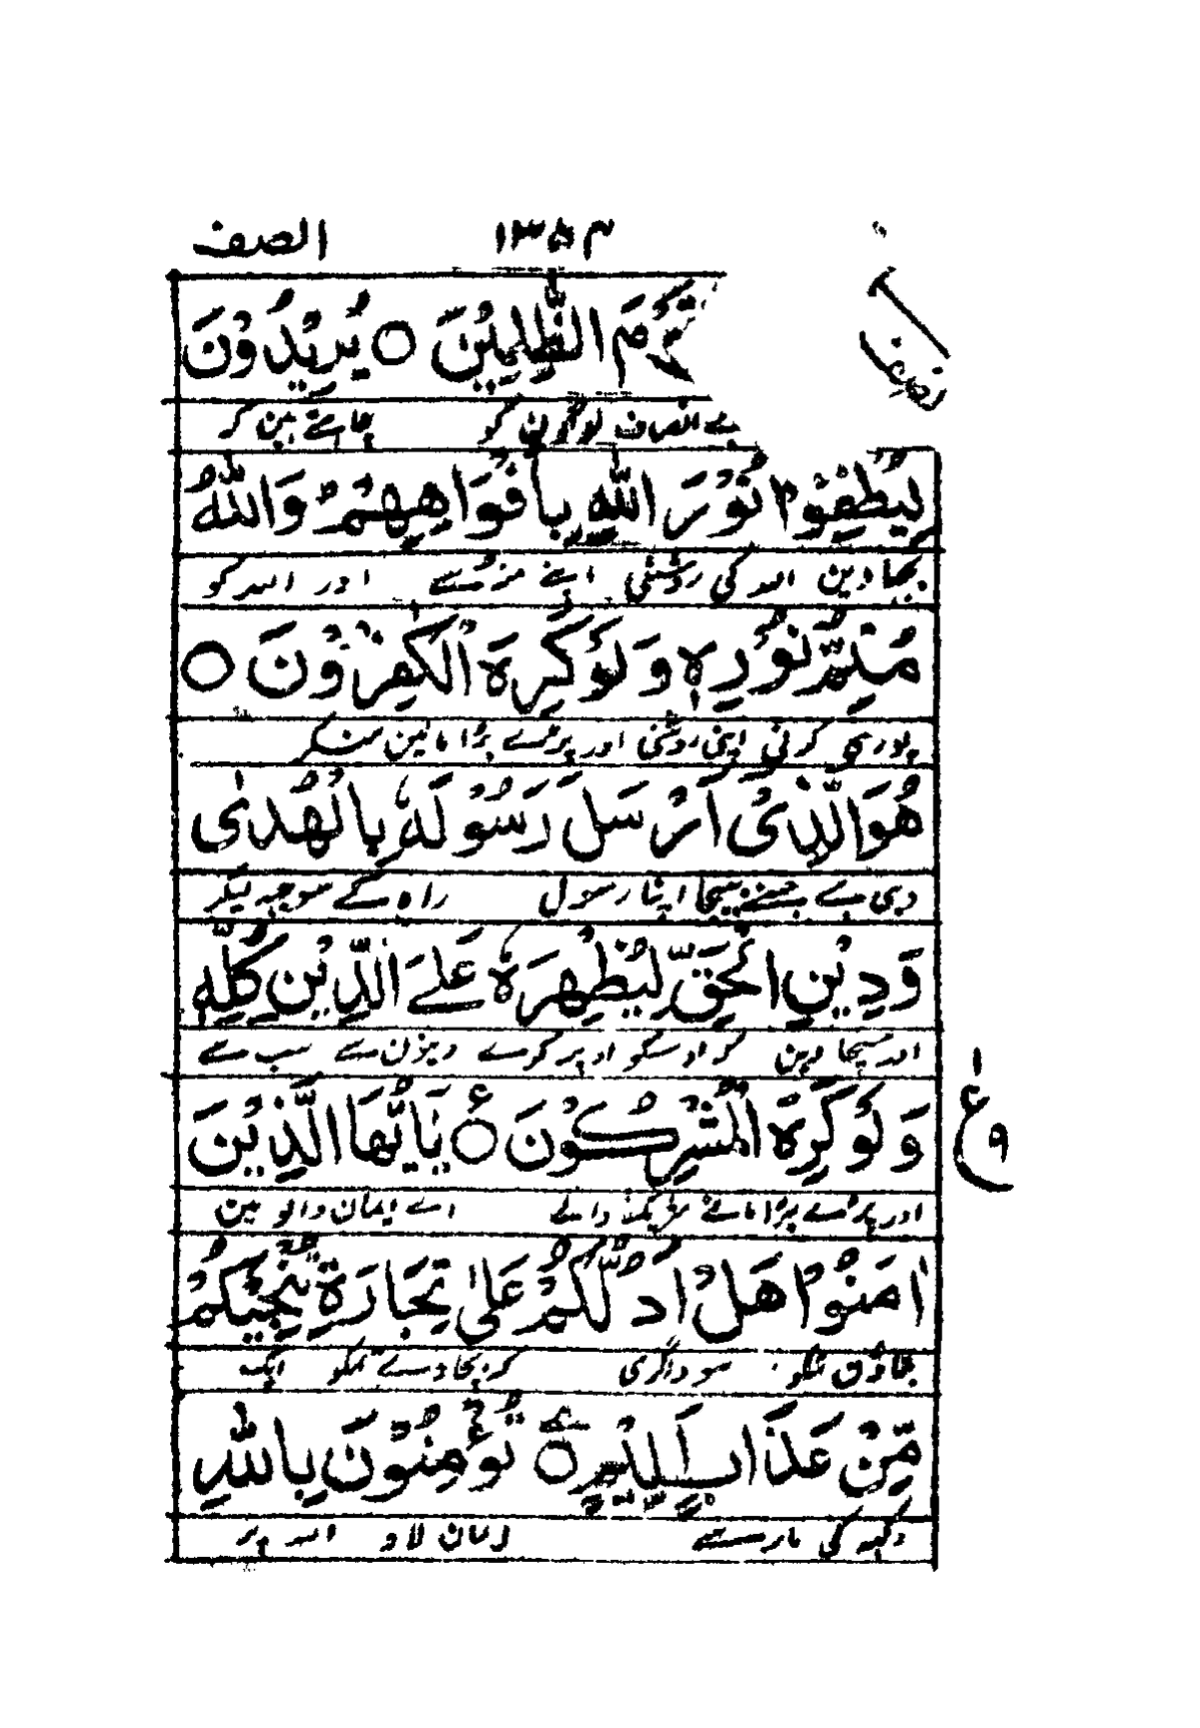 الصف ١٣٥٣
نصف
الظّٰلِمِیْنَ ○ یُرِیْدُوْنَ
بے انصاف لوگون کو چاہتے ہین کر
لِیُطْفِـُٔوْا نُوْرَ اللّٰهِ بِاَفْوَاهِهِمْ وَاللّٰهُ
بجھا دین اللہ کی روشنی اپنے منہ سے اور اللہ کو
مُتِمُّ نُوْرِهٖ وَلَوْ كَرِهَ الْكٰفِرُوْنَ ○
پوری کرنی اپنی روشنی اور پڑے برا مانین منکر
هُوَ الَّذِیْۤ اَرْسَلَ رَسُوْلَهٗ بِالْهُدٰی
وہی ہے جسنے بھیجا اپنا رسول راہ کے سوجھ لیکر
وَدِیْنِ الْحَقِّ لِیُظْهِرَهٗ عَلَی الدِّیْنِ كُلِّهٖ
اور سچا دین کر اوسکو اوپر کرے دینون سے سب سے
وَلَوْ كَرِهَ الْمُشْرِكُوْنَ ○ یٰۤاَیُّهَا الَّذِیْنَ
ع ٩
اور پڑے برا مانے شریک والے اے ایمان والو مین
اٰمَنُوْا هَلْ اَدُلُّكُمْ عَلٰی تِجَارَةٍ تُنْجِیْكُمْ
بتاؤن تمکو سوداگری کہ بچا دے تمکو ایک
مِّنْ عَذَابٍ اَلِیْمٍ ○ تُؤْمِنُوْنَ بِاللّٰهِ
دکھ کی مار سے ایمان لاؤ اللہ پر